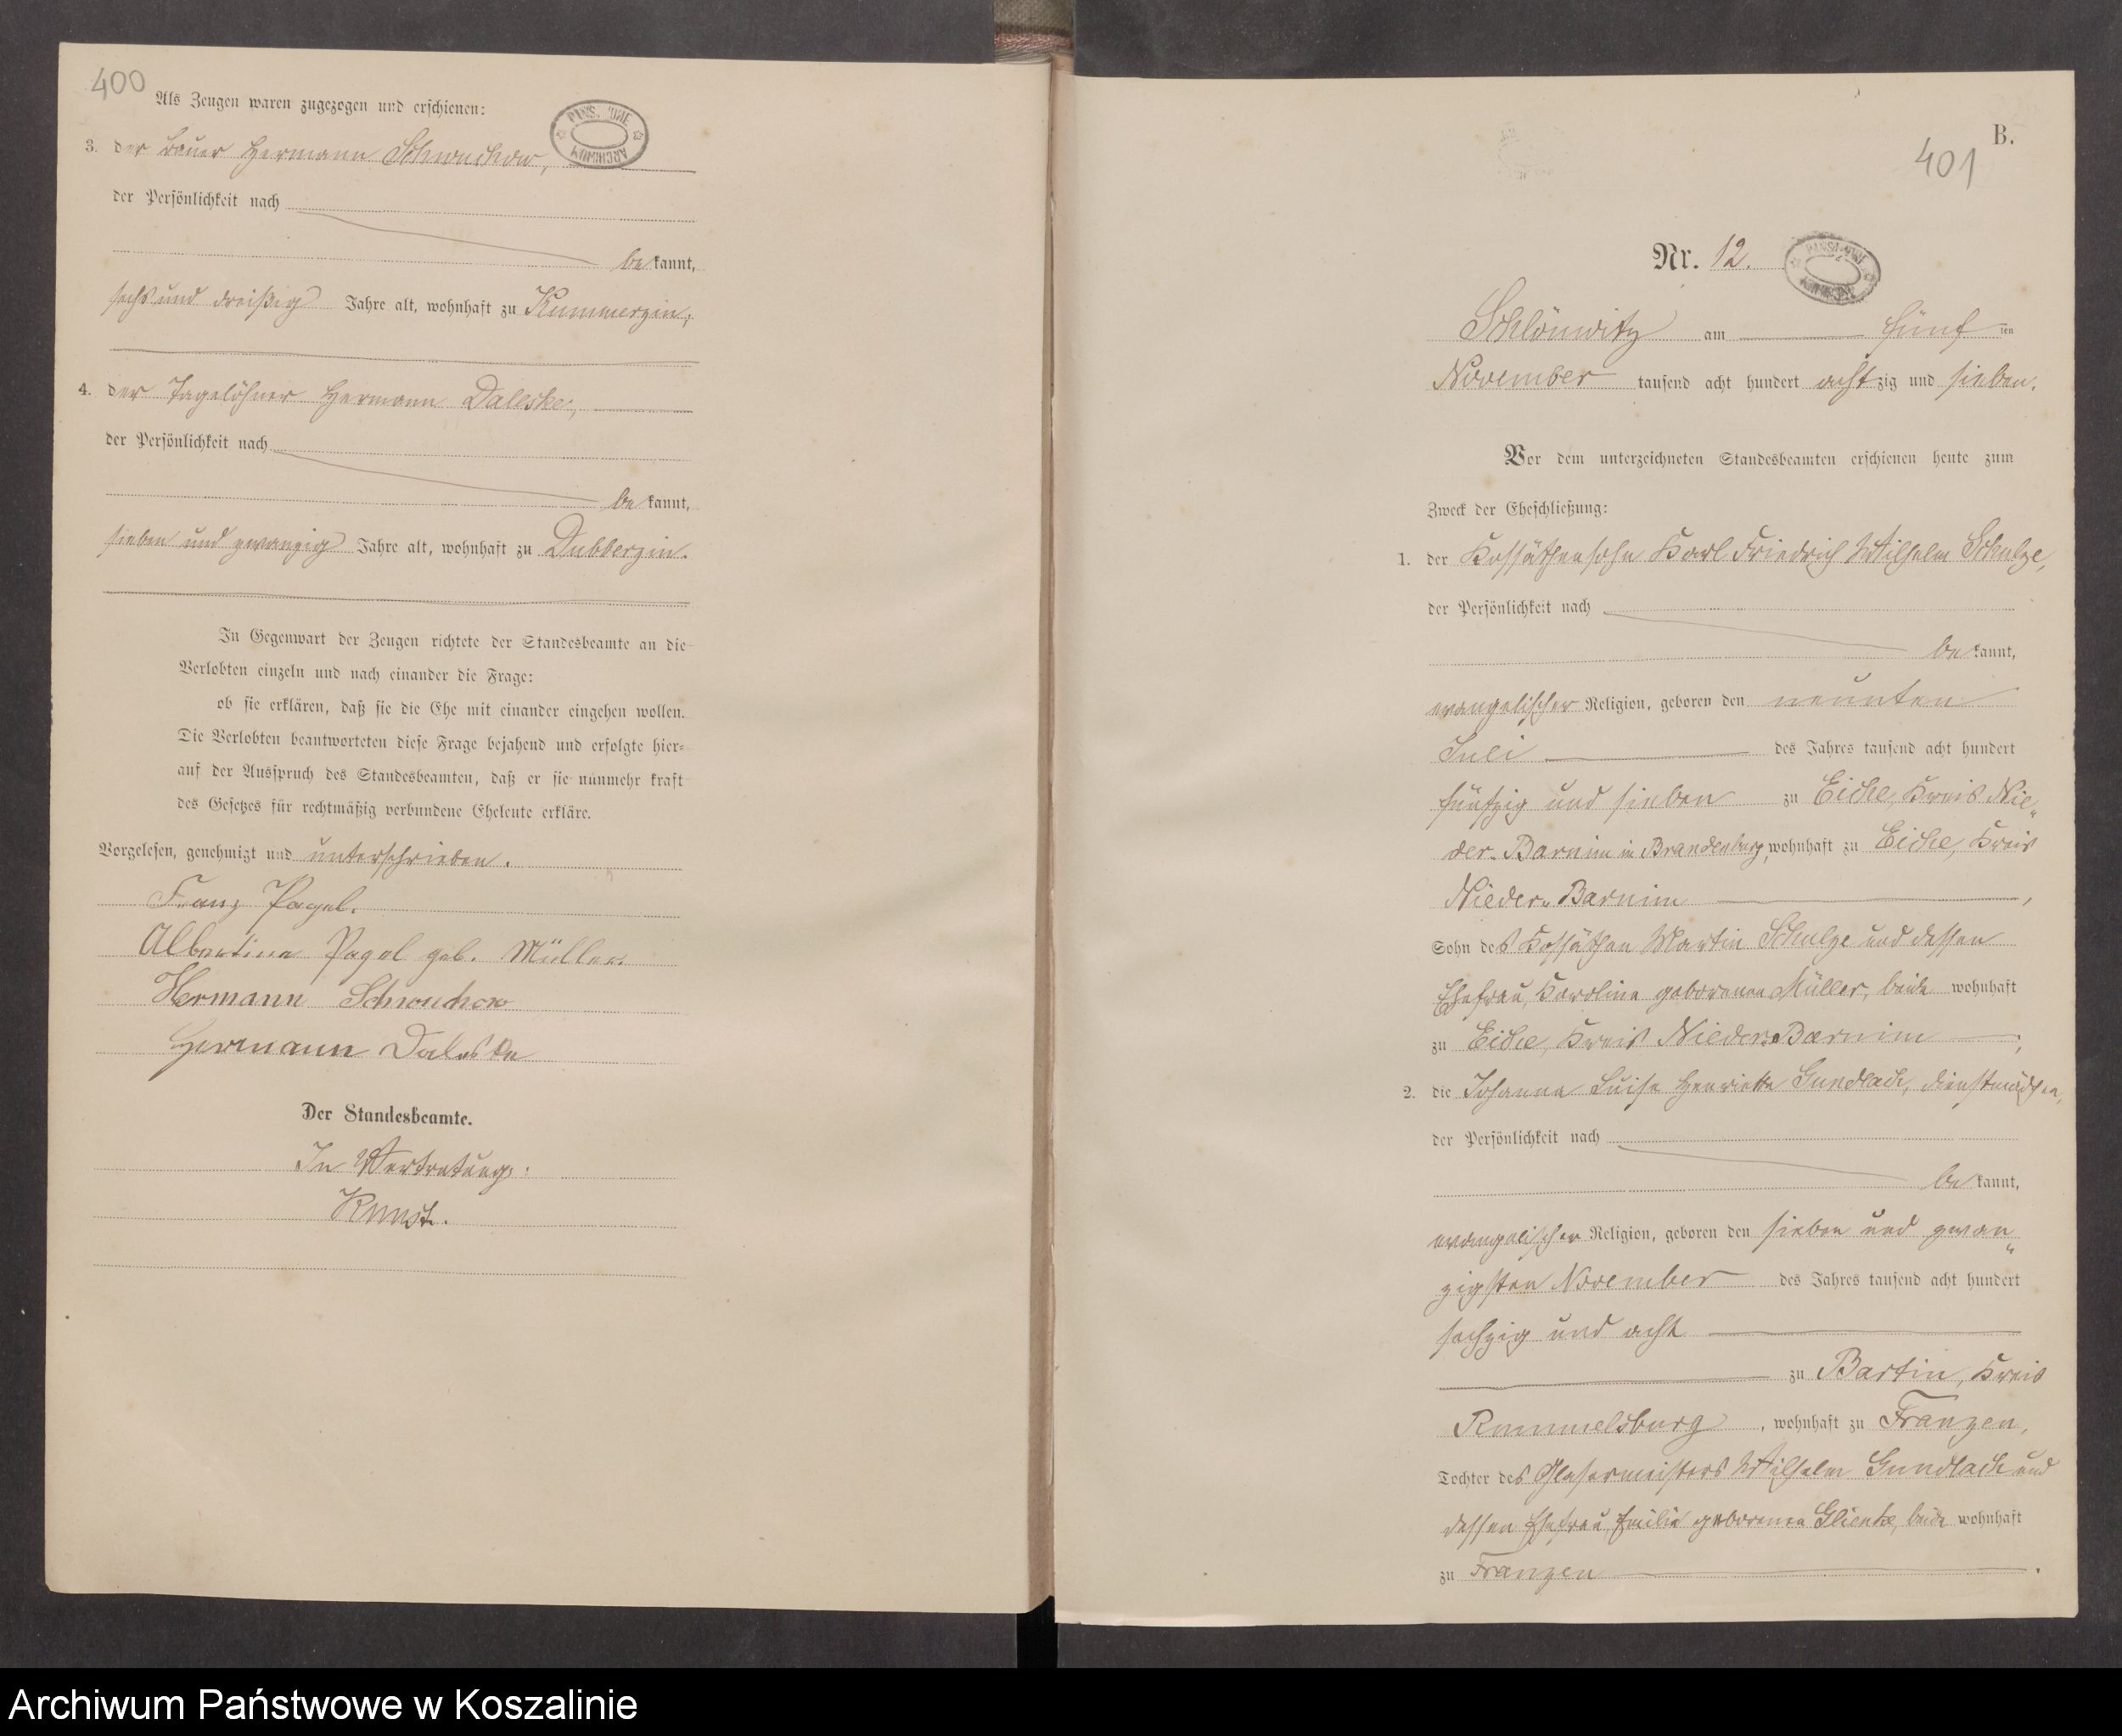 400
Als Zeugen waren zugezogen und erschienen:
3. der Bauer Hermann Schwuchow,
der Persönlichkeit nach
be kannt,
sechs und dreißig Jahre alt, wohnhaft zu Kummerzin,
4. der Tagelöhner Hermann Daleske,
der Persönlichkeit nach
be kannt,
sieben und zwanzig Jahre alt, wohnhaft zu Dubberzin.
In Gegenwart der Zeugen richtete der Standesbeamte an die
Verlobten einzeln und nach einander die Frage:
ob sie erklären, daß sie die Ehe mit einander eingehen wollen.
Die Verlobten beantworteten diese Frage bejahend und erfolgte hier=
auf der Ausspruch des Standesbeamten, daß er sie nunmehr kraft
des Gesetzes für rechtmäßig verbundene Eheleute erkläre.
Vorgelesen, genehmigt und unterschrieben.
Franz Pagel.
Albertine Pagel geb. Müller
Hermann Schwuchow
Hermann Daleske
Der Standesbeamte.
In Vertretung:
B.
401
Nr. 12.
Schlönwitz am fünf ten
November tausend acht hundert achtzig und sieben.
Vor dem unterzeichneten Standesbeamten erschienen heute zum
Zweck der Eheschließung:
1. der Kossäthensohn Karl Friedrich Wilhelm Schulze,
der Persönlichkeit nach
be kannt,
evangelischer Religion, geboren den neunten
Juli des Jahres tausend acht hundert
fünfzig und sieben zu Eiche, Kreis Nie„
der-Barnim in Brandenburg, wohnhaft zu Eiche, Kreis
Nieder-Barnim,
Sohn des Kossäthen Martin Schulze und dessen
Ehefrau, Karoline geborenen Müller, beide wohnhaft
zu Eiche, Kreis Nieder-Barnim;
2. die Johanna Luise Henriette Gundlach, Dienstmädchen,
der Persönlichkeit nach
be kannt,
evangelischer Religion, geboren den sieben und zwan„
zigsten November des Jahres tausend acht hundert
sechzig und acht
zu Bartin, Kreis
Rummelsburg, wohnhaft zu Franzen,
Tochter des Glasermeisters Wilhelm Gundlach und
dessen Ehefrau, Emilie geborenen Glienke, beide wohnhaft
zu Franzen.
Archiwum Państwowe w Koszalinie